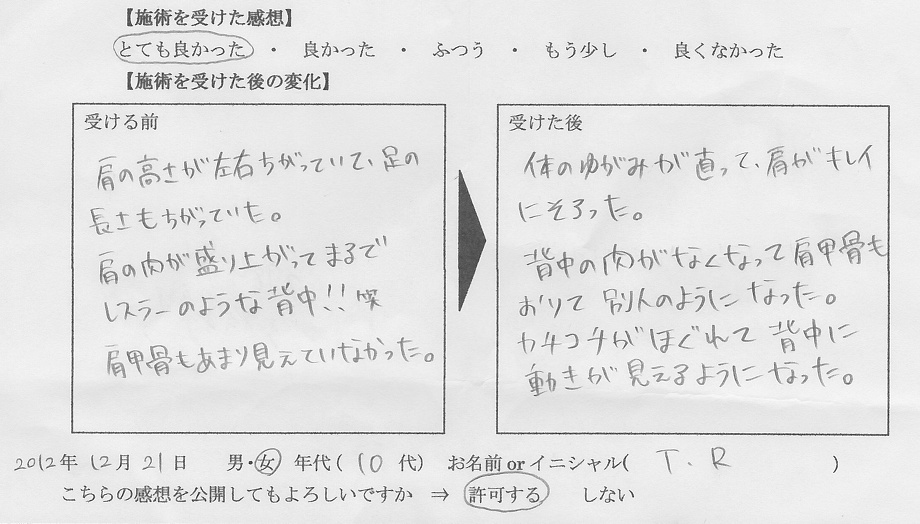 【施術を受けた感想】
とても良かった ・ 良かった ・ ふつう ・ もう少し ・ 良くなかった
【施術を受けた後の変化】
受ける前
肩の高さが左右ちがっていて、足の
長さもちがっていた。
肩の肉が盛り上がってまるで
レスラーのような背中!! 笑
肩甲骨もあまり見えていなかった。
受けた後
体のゆがみが直って、肩がキレイ
にそろった。
背中の肉がなくなって肩甲骨も
おりて別人のようになった。
カチコチがほぐれて背中に
動きが見えるようになった。
2012年 12月 21日 男・女 年代( 10 代) お名前 or イニシャル( T.R )
こちらの感想を公開してもよろしいですか ⇒ 許可する しない